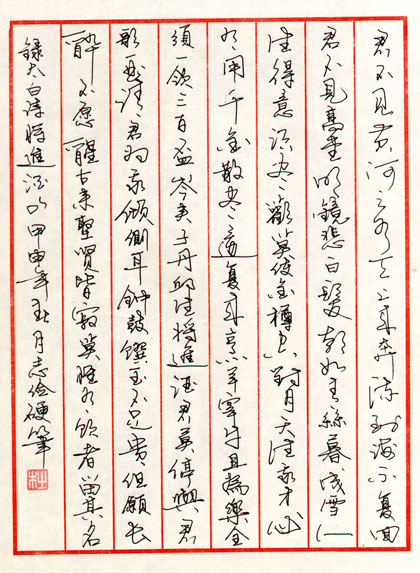 君不見黄河之水天上来奔流到海不复回
君不見高堂明鏡悲白髮朝如青絲暮成雪人
生得意須尽歡莫使金樽空對月天生我才必
有用千金散尽还复来烹羊宰牛且為樂会
須一飲三百盃岑夫子丹邱生將進酒君莫停與君
歌一曲請君为我傾側耳鐘鼓饌玉不足貴但願长
醉不愿醒古来聖贤皆寂莫惟有飲者留其名
録太白诗將進酒 甲申年秋月志俭硬筆